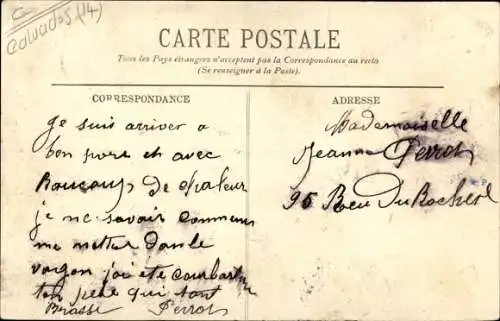 Calvados (14)
CARTE POSTALE
Tous les Pays étrangers n'acceptent pas la Correspondance au recto
(Se renseigner à la Poste).
CORRESPONDANCE
je suis arriver a
bon port et avec
Baucoup de chaleur
je ne savoir commen
me mettre dans le
vagon j'ai ete
ton père qui tant
Brasse Perrot
ADRESSE
Mademoiselle
Jeanne Perrot
95 Rue Du Rocher